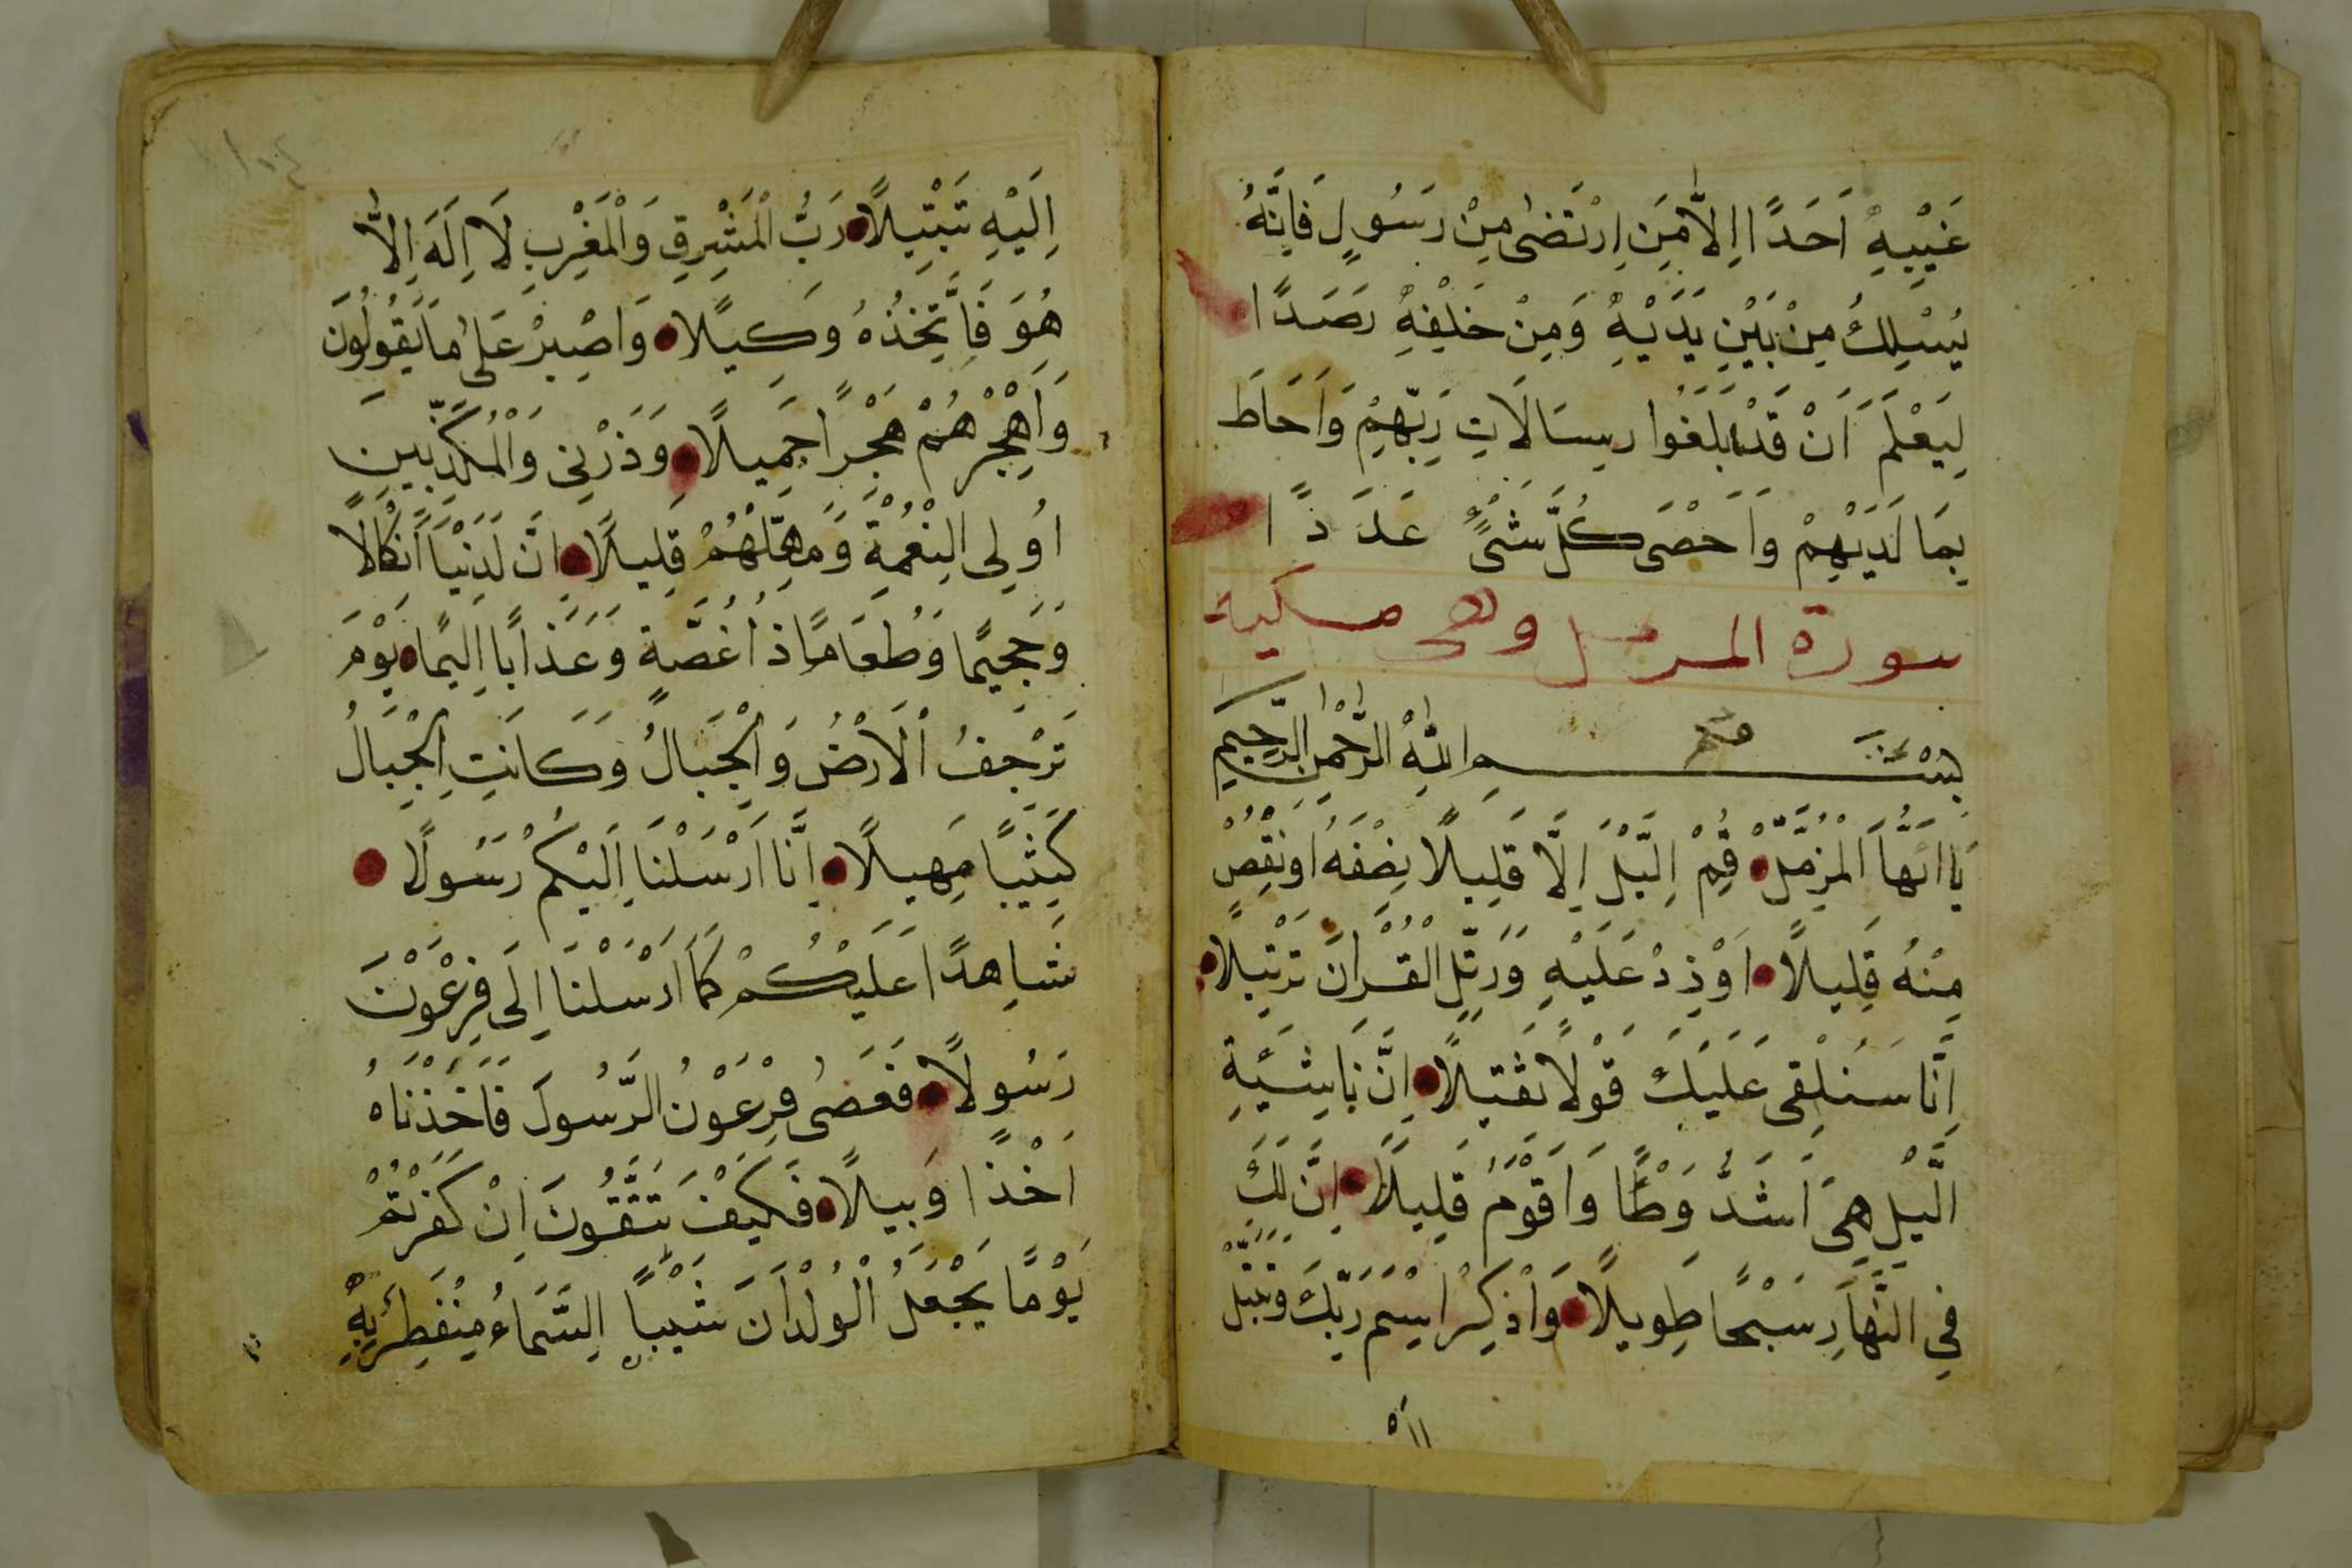 غَيْبِهِ اَحَدًا اِلَّا مَنِ ارْتَضٰى مِنْ رَسُولٍ فَاِنَّهُ
يَسْلُكُ مِنْ بَيْنِ يَدَيْهِ وَمِنْ خَلْفِهِ رَصَدًا
لِيَعْلَمَ اَنْ قَدْ اَبْلَغُوا رِسَالَاتِ رَبِّهِمْ وَاَحَاطَ
بِمَا لَدَيْهِمْ وَاَحْصَى كُلَّ شَىْءٍ عَدَدًا
سورة المزمل وهى مكية
بِسْمِ اللّٰهِ الرَّحْمٰنِ الرَّحِيمِ
يَا اَيُّهَا الْمُزَّمِّلُ قُمِ الَّيْلَ اِلَّا قَلِيلًا نِصْفَهُ اَوِ نْقُصْ
مِنْهُ قَلِيلًا اَوْ زِدْ عَلَيْهِ وَرَتِّلِ الْقُرْاٰنَ تَرْتِيلًا
اِنَّا سَنُلْقِى عَلَيْكَ قَوْلًا ثَقِيلًا اِنَّ نَاشِئَةَ
الَّيْلِ هِىَ اَشَدُّ وَطْأً وَاَقْوَمُ قَلِيلًا اِنَّ لَكَ
فِى النَّهَارِ سَبْحًا طَوِيلًا وَاذْكُرِ اسْمَ رَبِّكَ وَتَبَتَّلْ
اِلَيْهِ تَبْتِيلًا رَبُّ الْمَشْرِقِ وَالْمَغْرِبِ لَا اِلَهَ اِلَّا
هُوَ فَاتَّخِذْهُ وَكِيلًا وَاصْبِرْ عَلٰى مَا يَقُولُونَ
وَاهْجُرْهُمْ هَجْرًا جَمِيلًا وَذَرْنِى وَالْمُكَذِّبِينَ
اُولِى النَّعْمَةِ وَمَهِّلْهُمْ قَلِيلًا اِنَّ لَدَيْنَا اَنْكَالًا
وَجَحِيمًا وَطَعَامًا ذَا غُصَّةٍ وَعَذَابًا اَلِيمًا يَوْمَ
تَرْجُفُ الْاَرْضُ وَالْجِبَالُ وَكَانَتِ الْجِبَالُ
كَثِيبًا مَهِيلًا اِنَّا اَرْسَلْنَا اِلَيْكُمْ رَسُولًا
شَاهِدًا عَلَيْكُمْ كَمَا اَرْسَلْنَا اِلَى فِرْعَوْنَ
رَسُولًا فَعَصَى فِرْعَوْنُ الرَّسُولَ فَاَخَذْنَاهُ
اَخْذًا وَبِيلًا فَكَيْفَ تَتَّقُونَ اِنْ كَفَرْتُمْ
يَوْمًا يَجْعَلُ الْوِلْدَانَ شِيبًا السَّمَاءُ مُنْفَطِرٌ بِهِ